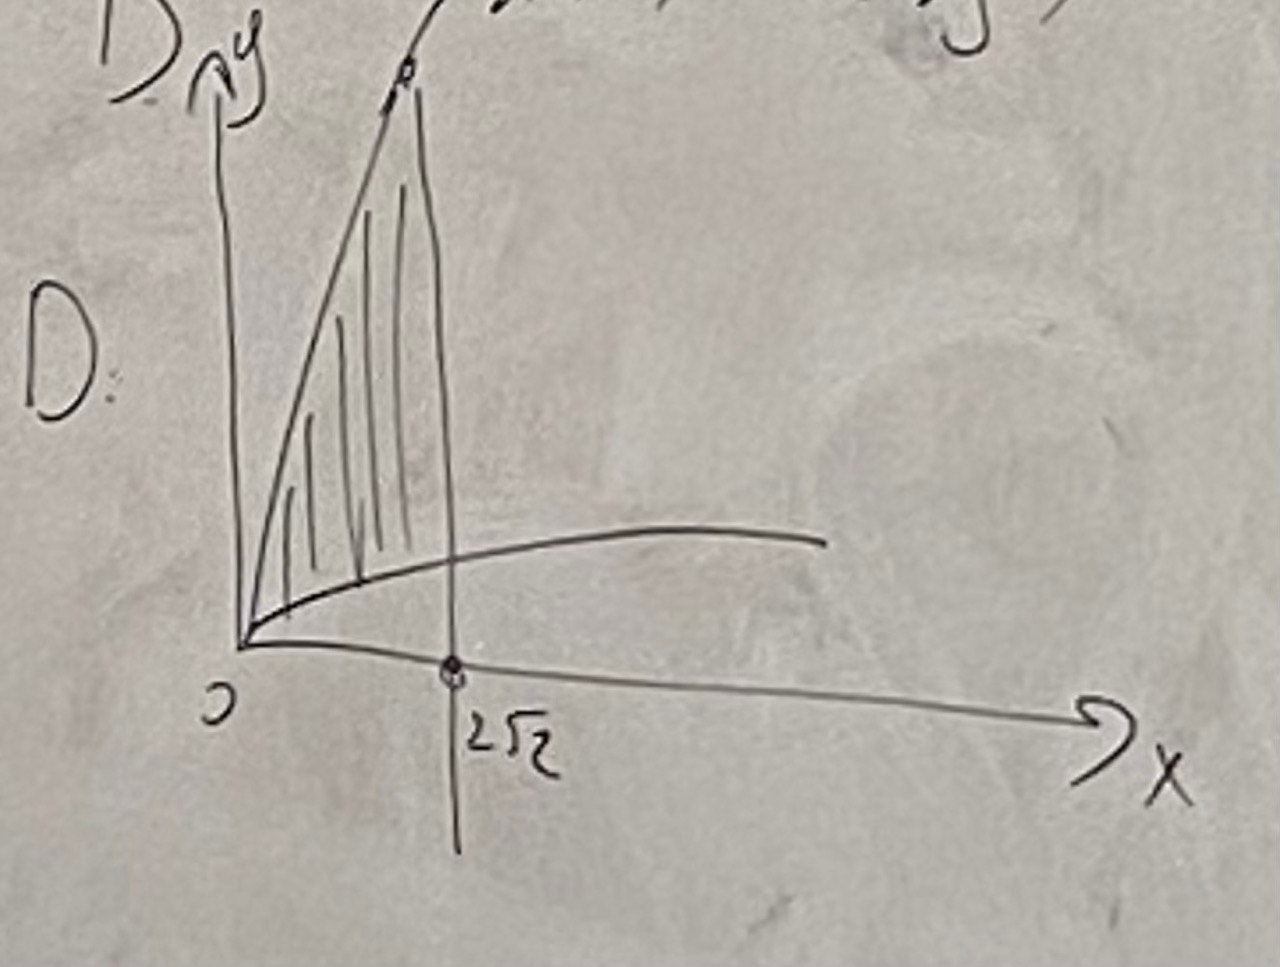 D.
y
D:
0
2√2
x